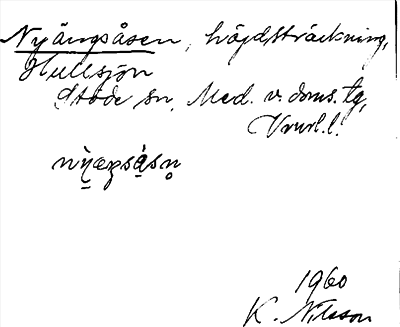 Nyängsåsen, höjdsträckning,
Hullsjön
Stöde sn, Med. v. doms. tg,
Vnrl. l.
1960
K. Nilsson